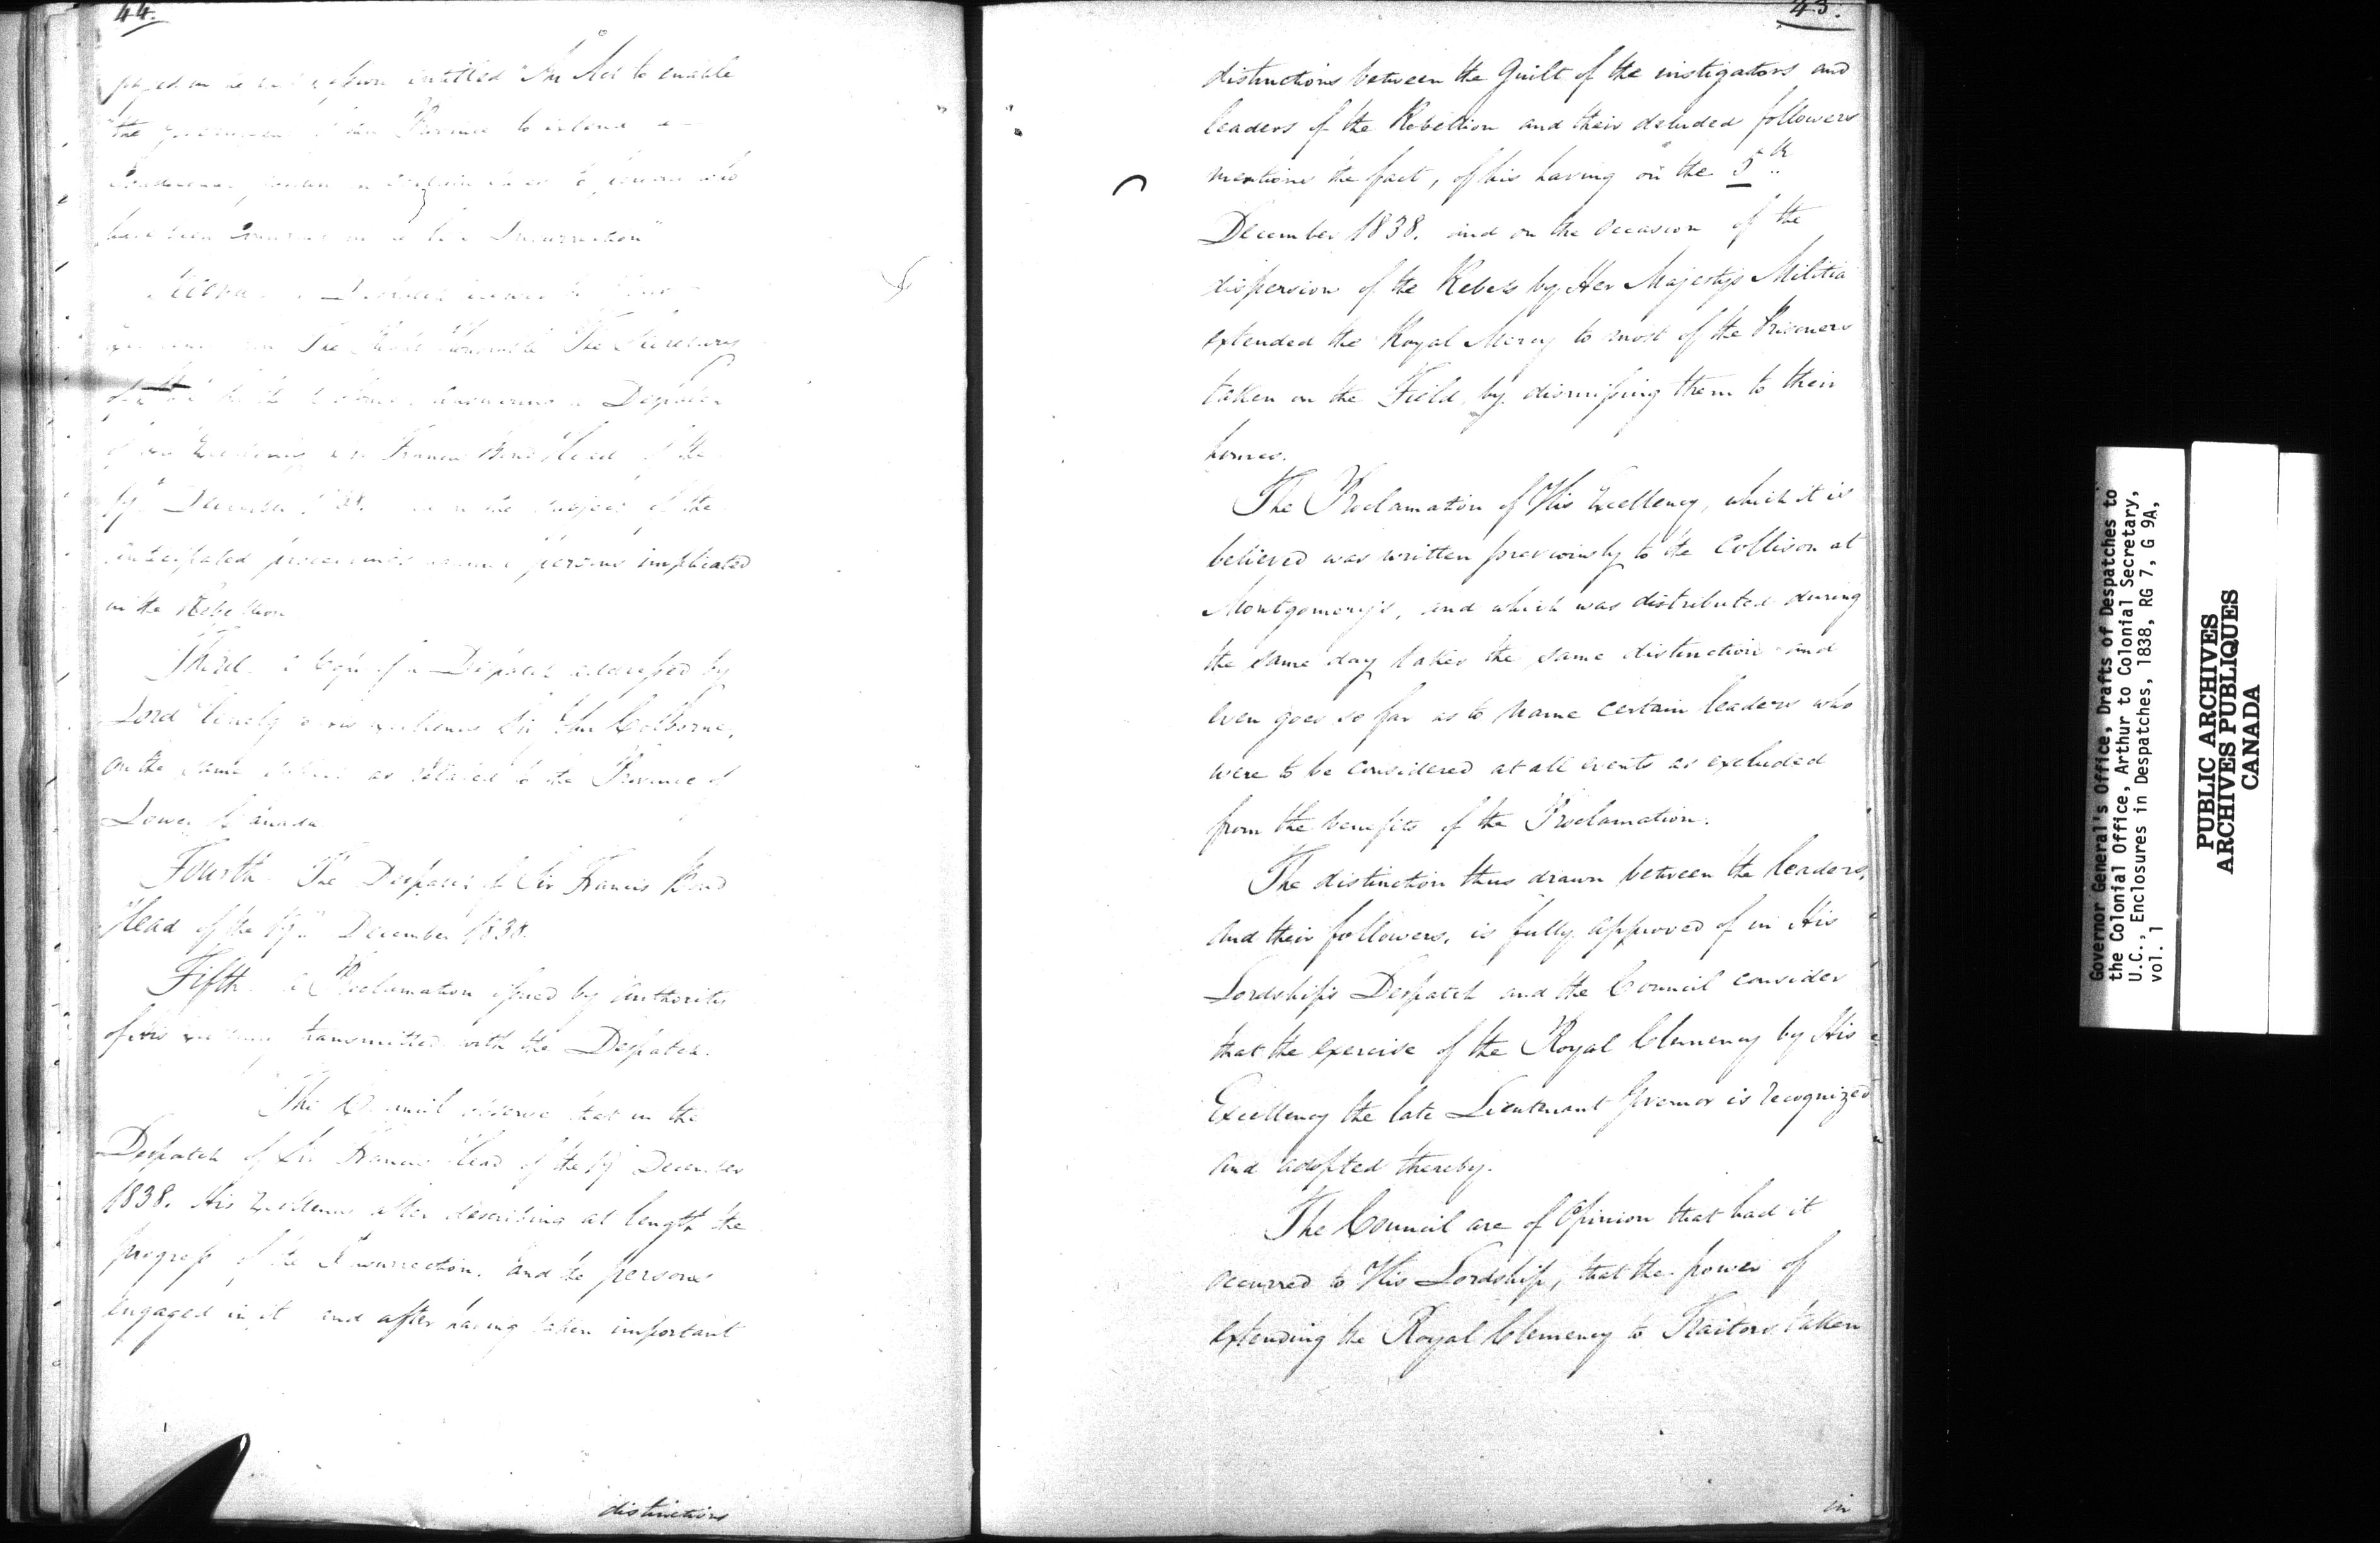 44.
entitled "An Act to enable
"the Province to extend a
have been Insurrection"
The Right Honorable The Secretary
Despatch
Francis Bond Head of the
December subject of the
anticipated proceedings against persons implicated
in the Rebellion
Third. a Copy of a Despatch addressed by
Lord Glenelg to His Excellency Sir John Colborne,
on the same subject as related to the Province of
Lower Canada
Fourth. The Despatch of Sir Francis Bond
Head of the 19th December 1838.
Fifth. a Proclamation issued by Authority
of His Excellency transmitted with the Despatch.
The Council observe that in the
Despatch of Sir Francis Head of the 19th December
1838. His Excellency after describing at length the
progress of the Insurrection, and the persons
engaged in it and after having taken important
distinctions
45.
distinctions between the Guilt of the instigators and
leaders of the Rebellion and their deluded followers
mentions the fact, of his having on the 5th
December 1838. and on the occasion of the
dispersion of the Rebels by Her Majesty's Militia
extended the Royal Mercy to most of the Prisoners
taken on the Field, by dismissing them to their
homes.
The Proclamation of His Excellency, which it is
believed was written previously to the Collison at
Montgomery's, and which was distributed during
the same day takes the same distinction and
even goes so far as to name certain leaders who
were to be considered at all events as excluded
from the benefits of the Proclamation.
The distinction thus drawn between the leaders,
and their followers, is fully approved of in His
Lordship's Despatch and the Council consider
that the exercise of the Royal Clemency by His
Excellency the late Lieutenant Governor is recognized
and adopted thereby.
The Council are of Opinion that had it
occurred to His Lordship, that the power of
extending the Royal Clemency to Traitors taken
in
Governor General's Office, Drafts of Despatches to
the Colonial Office, Arthur to Colonial Secretary,
U.C., Enclosures in Despatches, 1838, RG 7, G 9A,
vol. 1
PUBLIC ARCHIVES
ARCHIVES PUBLIQUES
CANADA